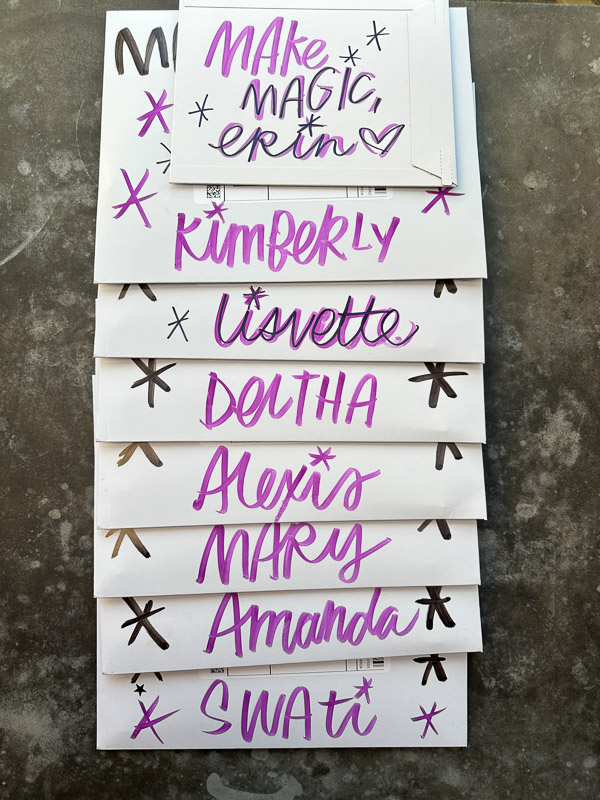 MAke
MAGIC,
erin
KimBeRLY
Lisvette
DeLTHA
Alexis
MARy
Amanda
SWATi